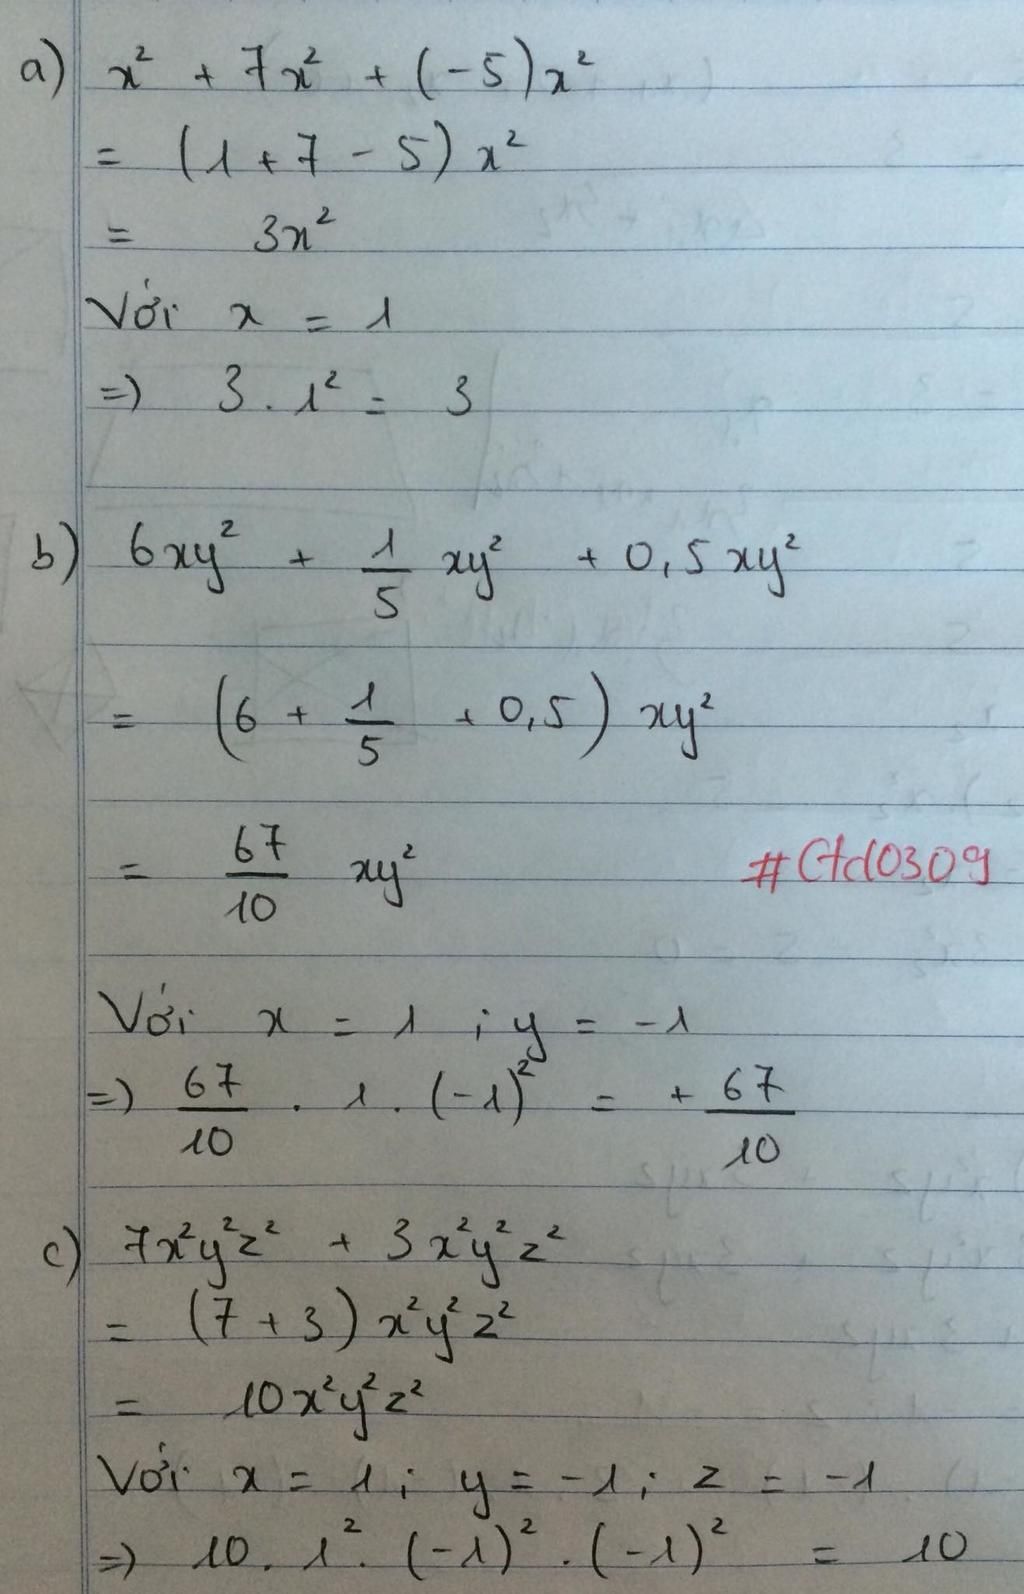 a) x² + 7x² + (-5)x²
= (1 + 7 - 5) x²
= 3x²
Với x = 1
=) 3 . 1² = 3
b) 6xy² + 1/5 xy² + 0,5 xy²
= (6 + 1/5 + 0,5) xy²
= 67/10 xy²
#Ctd0309
Với x = 1 ; y = -1
=) 67/10 . 1 . (-1)² = + 67/10
c) 7x²y²z² + 3x²y²z²
= (7 + 3) x²y²z²
= 10x²y²z²
Với x = 1 ; y = -1 ; z = -1
=) 10 . 1² . (-1)² . (-1)² = 10